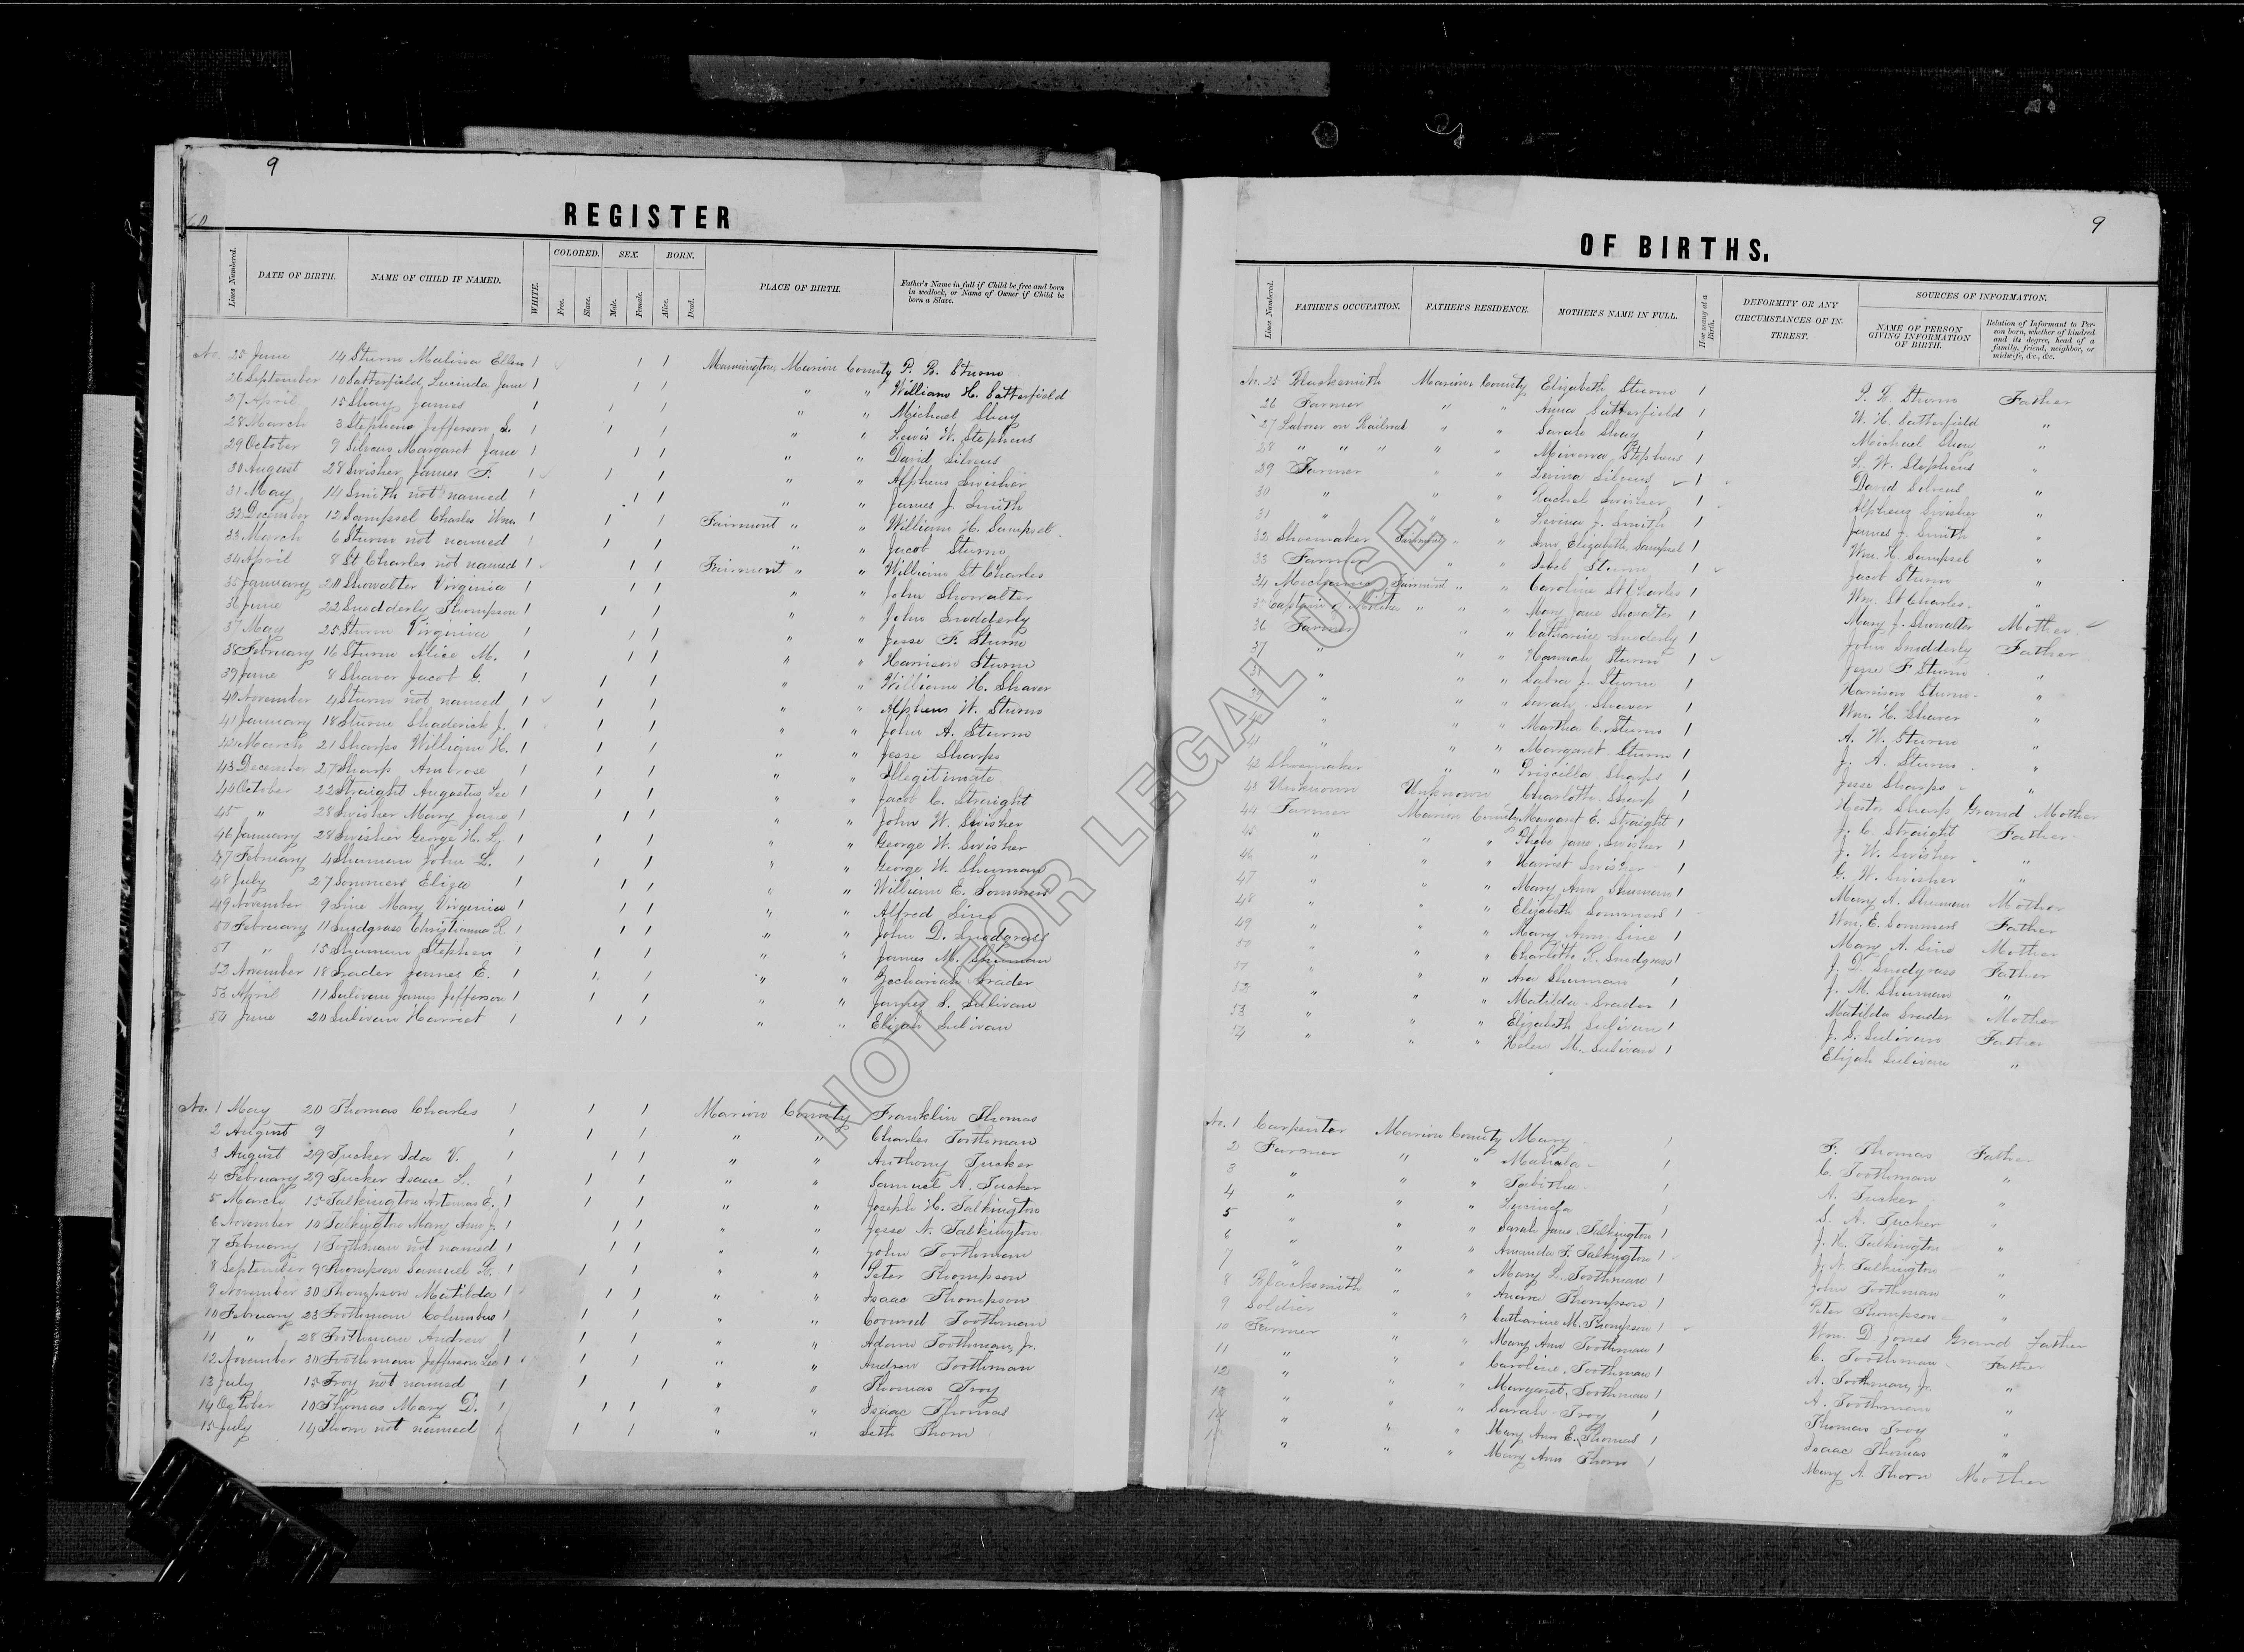 9
REGISTER
Lines Numbered. DATE OF BIRTH. NAME OF CHILD IF NAMED. WHITE. COLORED. Free. Slave. SEX. Male. Female. BORN. Alive. Dead. PLACE OF BIRTH. Father's Name in full if Child be free and born in wedlock, or Name of Owner if Child be born a Slave.
No. 25 June 14 Sturm Malissa Ellen 1 1 1 Mannington, Marion County P. B. Sturm
26 September 10 Satterfield, Lucinda Jane 1 1 1 " " William H. Satterfield
27 April 15 Shay James 1 1 1 " " Michael Shay
28 March 3 Stephens Jefferson S. 1 1 1 " " Lewis W. Stephens
29 October 9 Silveus Margaret Jane 1 1 1 " " David Silveus
30 August 28 Swisher James F. 1 1 1 " " Alpheus Swisher
31 May 14 Smith not named 1 1 1 " " James J. Smith
32 December 12 Sampsel Charles Wm. 1 1 1 Fairmont " " William H. Sampsel
33 March 6 Sturm not named 1 1 1 " " Jacob Sturm
34 April 8 St Charles not named 1 1 1 Fairmont " " William St Charles
35 January 20 Showalter Virginia 1 1 1 " " John Showalter
36 June 22 Snodderly Thompson 1 1 1 " " John Snodderly
37 May 25 Sturm Virginia 1 1 1 " " Jesse F. Sturm
38 February 16 Sturm Alice M. 1 1 1 " " Harrison Sturm
39 June 8 Shaver Jacob G. 1 1 1 " " William H. Shaver
40 November 4 Sturm not named 1 1 1 " " Alpheus W. Sturm
41 January 18 Sturm Shaderick J. 1 1 1 " " John A. Sturm
42 March 21 Sharps William H. 1 1 1 " " Jesse Sharps
43 December 27 Sharp Ambrose 1 1 1 " " Illegitimate
44 October 22 Straight Augustus Lee 1 1 1 " " Jacob C. Straight
45 " 28 Swisher Mary Jane 1 1 1 " " John W. Swisher
46 January 28 Swisher George H. L. 1 1 1 " " George W. Swisher
47 February 4 Shuman John L. 1 1 1 " " George W. Shuman
48 July 27 Sommers Eliza 1 1 1 " " William E. Sommers
49 November 9 Sine Mary Virginia 1 1 1 " " Alfred Sine
50 February 11 Snodgrass Christianna R 1 1 1 " " John D. Snodgrass
51 " 15 Shuman Stephen 1 1 1 " " James M. Shuman
52 November 18 Srader James E. 1 1 1 " " Zechariah Srader
53 April 11 Sulivan James Jefferson 1 1 1 " " James S. Sulivan
54 June 20 Sulivan Harriet 1 1 1 " " Elijah Sulivan
No. 1 May 20 Thomas Charles 1 1 1 Marion County Franklin Thomas
2 August 9 1 1 1 " " Charles Toothman
3 August 29 Tucker Ida V. 1 1 1 " " Anthony Tucker
4 February 29 Tucker Isaac L. 1 1 1 " " Samuel A. Tucker
5 March 15 Talkington Artemus E. 1 1 1 " " Joseph H. Talkington
6 November 10 Talkington Mary Ann J. 1 1 1 " " Jesse N. Talkington
7 February 1 Toothman not named 1 1 1 " " John Toothman
8 September 9 Thompson Samuel G. 1 1 1 " " Peter Thompson
9 November 30 Thompson Matilda 1 1 1 " " Isaac Thompson
10 February 23 Toothman Columbus 1 1 1 " " Conrad Toothman
11 " 28 Toothman Andrew 1 1 1 " " Adam Toothman, Jr.
12 November 30 Toothman Jefferson Lee 1 1 1 " " Andrew Toothman
13 July 15 Troy not named 1 1 1 " " Thomas Troy
14 October 10 Thomas Mary D. 1 1 1 " " Isaac Thomas
15 July 14 Thorn not named 1 1 1 " " Seth Thorn
9
OF BIRTHS.
Lines Numbered. FATHER'S OCCUPATION. FATHER'S RESIDENCE. MOTHER'S NAME IN FULL. How many at a Birth. DEFORMITY OR ANY CIRCUMSTANCES OF INTEREST. SOURCES OF INFORMATION. NAME OF PERSON GIVING INFORMATION OF BIRTH. Relation of Informant to Person born, whether of kindred and its degree, head of a family, friend, neighbor, or midwife, &c., &c.
No. 25 Blacksmith Marion County Elizabeth Sturm 1 P. B. Sturm Father
26 Farmer " " Anna Satterfield 1 W. H. Satterfield "
27 Laborer on Railroad " " Sarah Shay 1 Michael Shay "
28 " " " " " Minerva Stephens 1 L. W. Stephens "
29 Farmer " " Levina Silveus 1 David Silveus "
30 " " " Rachel Swisher 1 Alpheus Swisher "
31 " " " Levina J. Smith 1 James J. Smith "
32 Shoemaker Fairmont " " Ann Elizabeth Sampsel 1 Wm. H. Sampsel "
33 Farmer " " Isbel Sturm 1 Jacob Sturm "
34 Mechanic Fairmont " " Caroline St Charles 1 Wm. St Charles "
35 Captain of " " " Mary Jane Showalter 1 Mary J. Showalter Mother
36 Farmer " " Catharine Snodderly 1 John Snodderly Father
37 " " " Hannah Sturm 1 Jesse F Sturm "
" " " Sabra J. Sturm 1 Harrison Sturm "
39 " " " Sarah Shaver 1 Wm. H. Shaver "
" " " Martha C. Sturm 1 A. W. Sturm "
41 " " " Margaret Sturm 1 J. A. Sturm "
42 Shoemaker " " Priscilla Sharps 1 Jesse Sharps "
43 Unknown Unknown Charlotte Sharp 1 Sharp Grand Mother
44 Farmer Marion County Margaret E. Straight 1 J. C. Straight Father
45 " " " Phebe Jane Swisher 1 J. W. Swisher "
46 " " " Harriet Swisher G. W. Swisher "
47 " " " Mary Ann Shuman 1 Mary A. Shuman Mother
48 " " " Elizabeth Sommers 1 Wm. E. Sommers Father
49 " " " Mary Ann Sine 1 Mary A. Sine Mother
50 " " " Charlotte S. Snodgrass 1 J. D. Snodgrass Father
51 " " " Ara Shuman 1 J. M. Shuman "
52 " " " Matilda Srader 1 Matilda Srader Mother
53 " " " Elizabeth Sulivan 1 J. S. Sulivan Father
54 " " " Helen M. Sulivan 1 Elijah Sulivan "
No. 1 Carpenter Marion County Mary 1 F. Thomas Father
2 Farmer " " Mahala 1 C. Toothman "
3 " " " Tabitha 1 A. Tucker "
4 " " " Lucinda 1 S. A. Tucker "
5 " " " Sarah Jane Talkington 1 J. H. Talkington "
6 " " " Amanda F. Talkington 1 J. N. Talkington "
7 " " " Mary L. Toothman 1 John Toothman "
8 Blacksmith " " Thompson 1 Peter Thompson "
9 Soldier " " Catharine M. Thompson 1 Wm. D Jones Grand Father
10 Farmer " " Mary Ann Toothman 1 C. Toothman Father
11 " " " Caroline Toothman 1 A. Toothman, Jr. "
12 " " " Margaret Toothman 1 A. Toothman "
13 " " " Sarah Troy 1 Thomas Troy "
14 " " " Mary Ann E. Thomas 1 Isaac Thomas "
" " " Mary Ann Thorn 1 Mary A. Thorn Mother
NOT FOR LEGAL USE